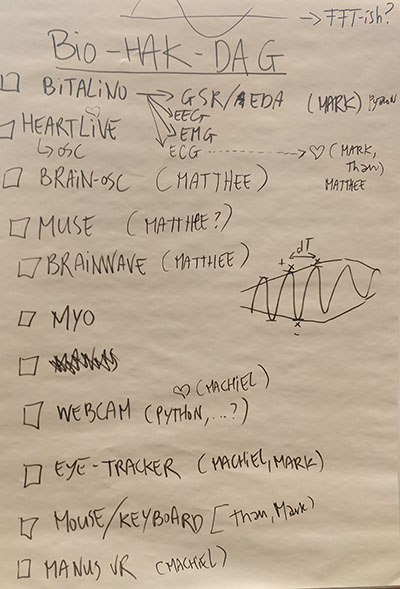 → FFT-ish?
BiO-HAK-DAG
BiTALiNO → GSR/EDA (MARK)
EEG
EMG
ECG → ♡ (MARK, Than)
MATTHEE
HEARTLiVE ♡
↳ OSC
BRAiN-OSC (MATTHEE)
MUSE (MATTHEE?)
BRAiNWAVE (MATTHEE)
+ dT
-
MYO
WEBCAM (PYTHON, ...?) ♡ (MACHiEL)
EYE-TRACKER (MACHiEL, MARK)
MOUSE/KEYBOARD [Than, Mark)
MANUS VR (MACHiEL)